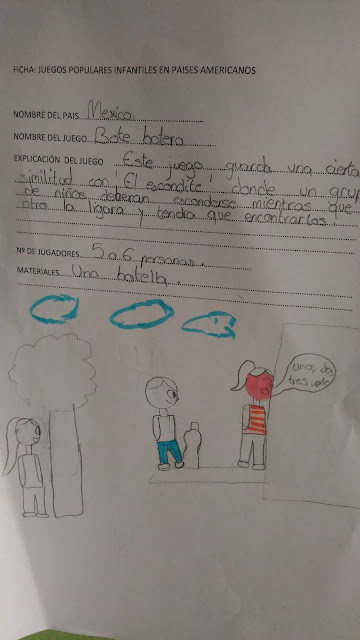 FICHA: JUEGOS POPULARES INFANTILES EN PAISES AMERICANOS
NOMBRE DEL PAIS Mexico
NOMBRE DEL JUEGO Bote botero
EXPLICACIÓN DEL JUEGO Este juego, guarda una cierta
similitud con 'El escondite', donde un grup
de niños deberan esconderse mientras que
otro la ligara y tendra que encontrarlos.
Nº DE JUGADORES 5 o 6 personas.
MATERIALES Una botella.
uno, dos,
tres..etc